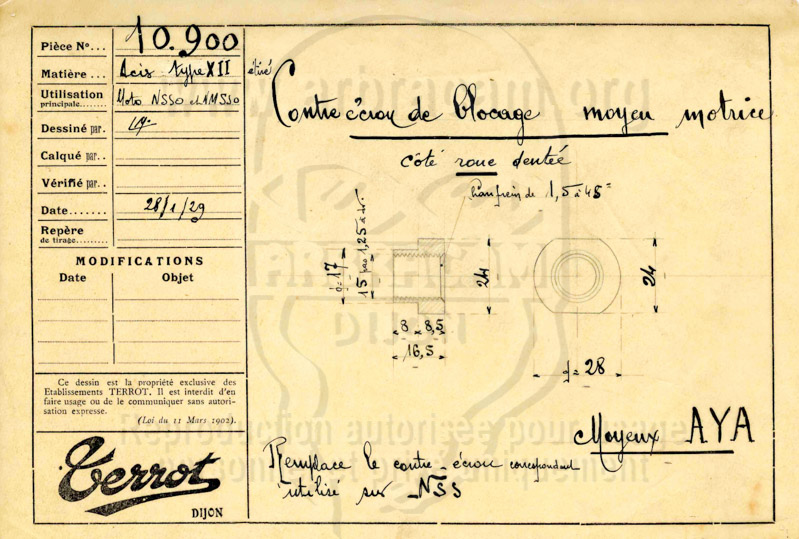 Pièce N°... 10.900
Matière... Acis type XII étiré
Utilisation
principale........ Moto NSSO et NMSSO
Dessiné par.
Calqué par..
Vérifié par..
Date....... 28/1/29
Repère
de tirage........
MODIFICATIONS
Date Objet
Ce dessin est la propriété exclusive des
Etablissements TERROT. Il est interdit d'en
faire usage ou de le communiquer sans autori-
sation expresse.
(Loi du 11 Mars 1902).
Terrot
DIJON
Contre écrou de blocage moyeu motrice
côté roue dentée
chanfrein de 1,5 à 45°
d=17
15 pas 1,25 à dr.
24
24
8 8,5
16,5
d=28
Moyeux AYA
Remplace le contre-écrou correspondant
utilisé sur NSS
DIJON
Reproduction autorisée pour usage
personnel et privé uniquement